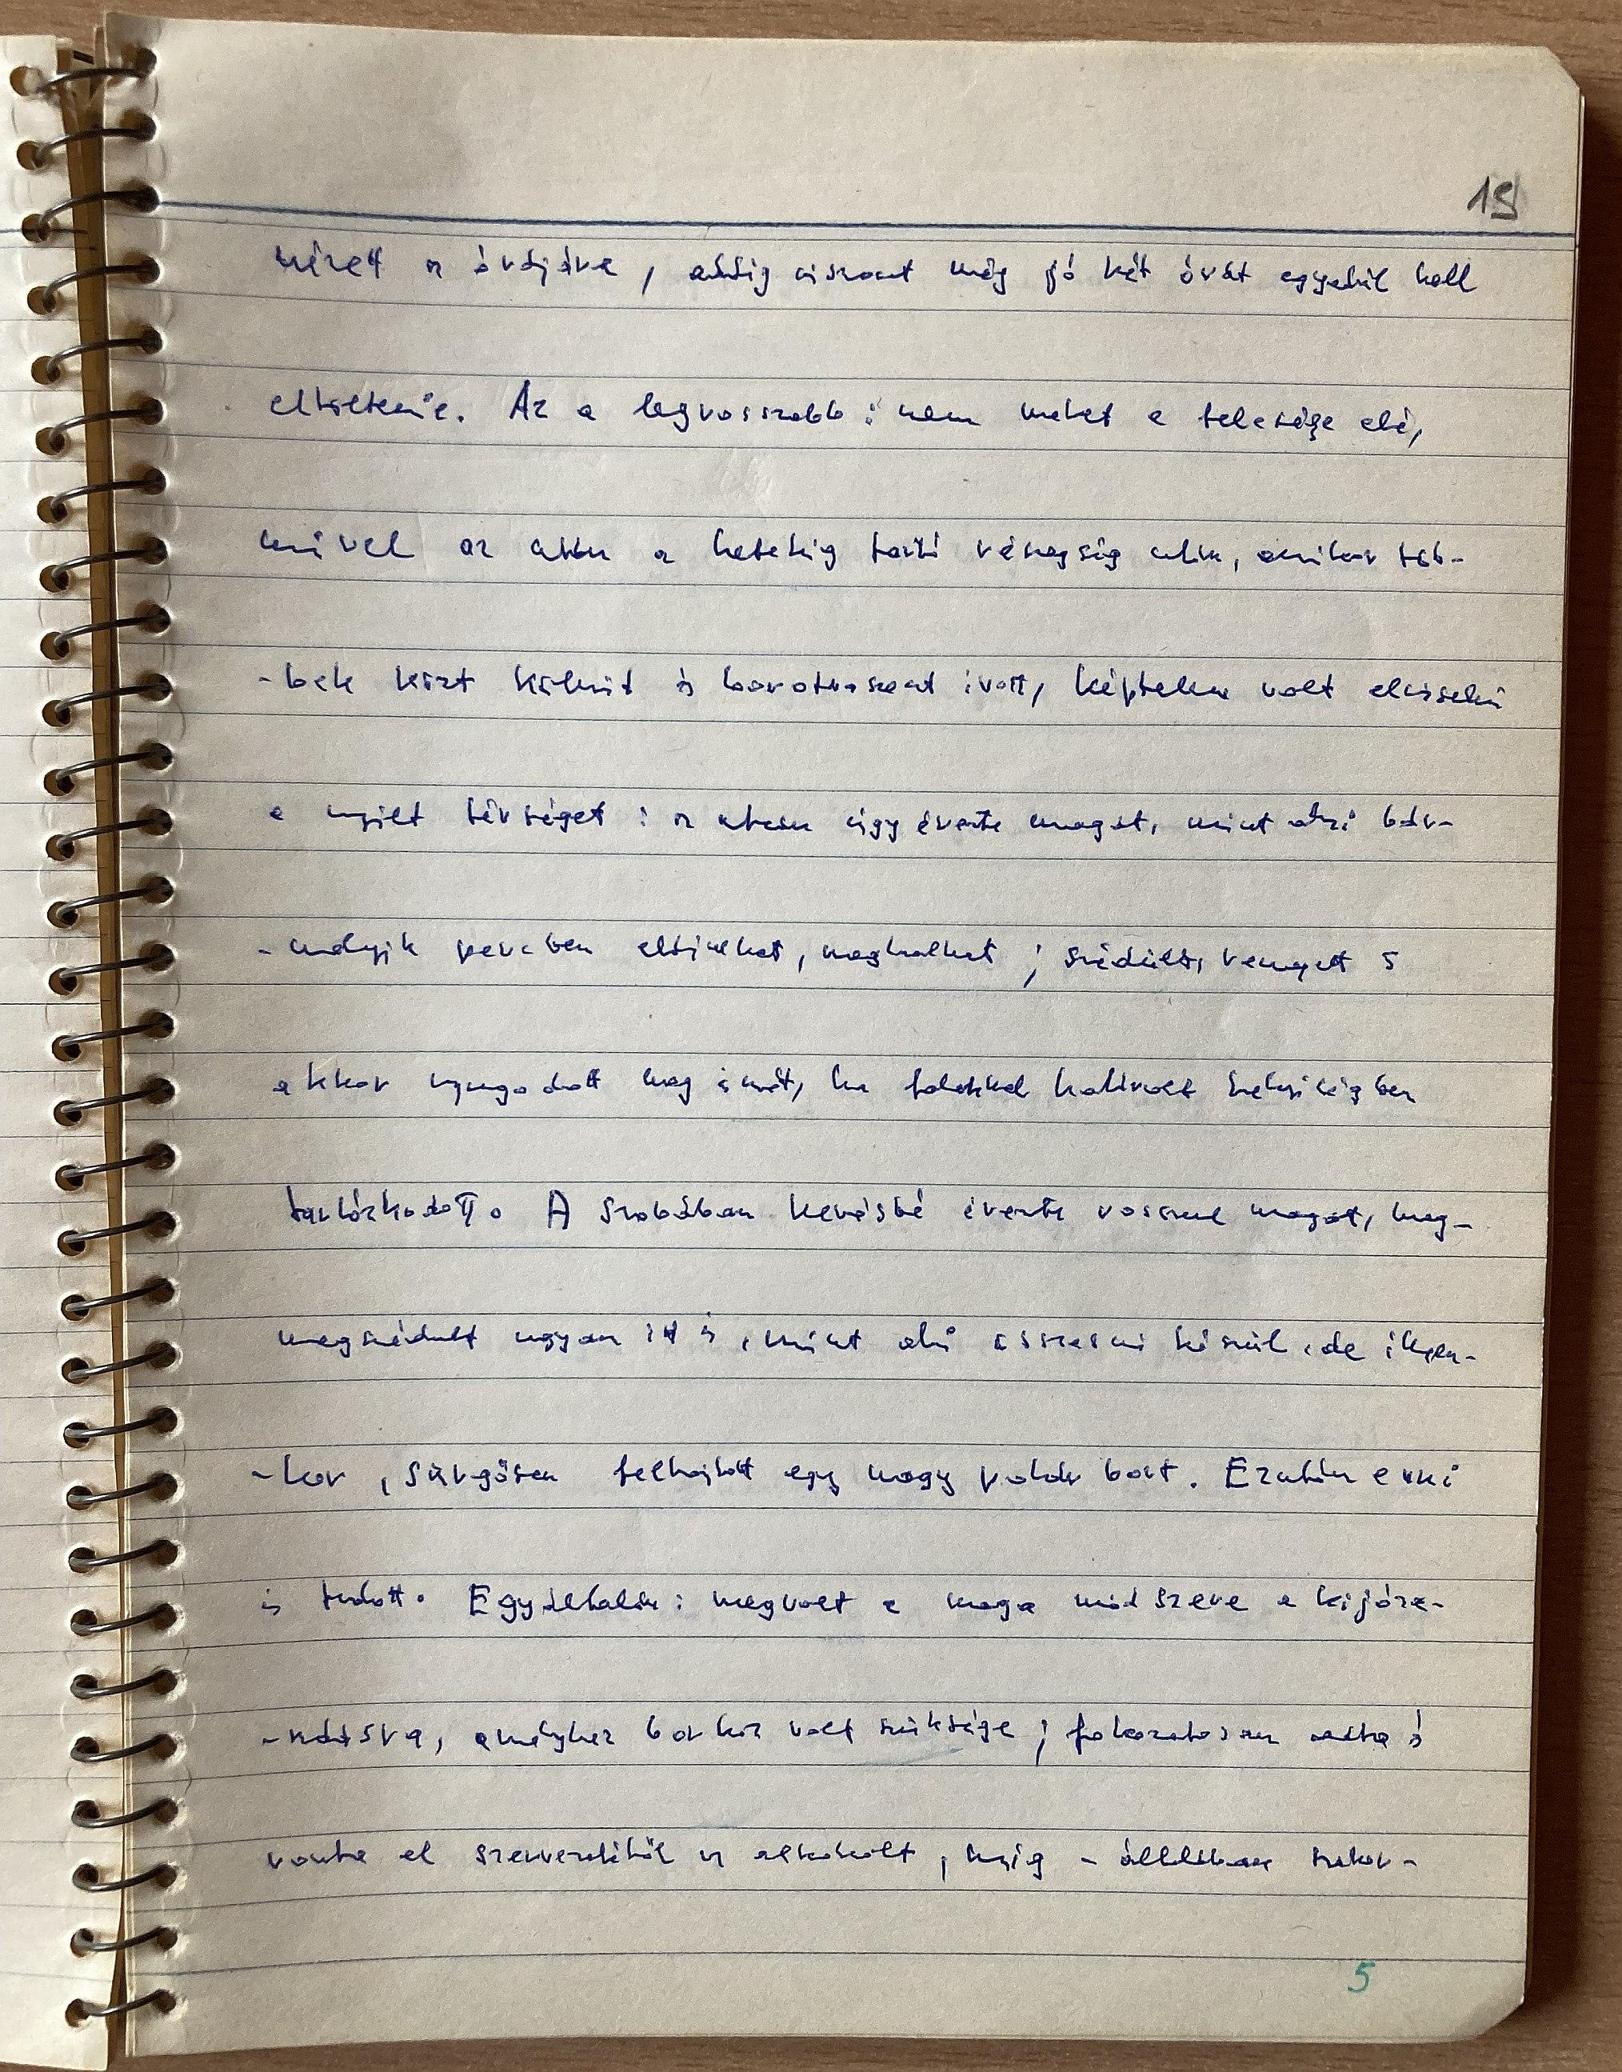 19
nézett az órájára, addig viszont még jó két órát egyedül kell
eltöltenie. Az a legrosszabb: nem mehet a felesége elé,
mivel az után a hetekig tartó részegség után, amikor töb-
-bek közt kölnit és borotvaszeszt ivott, képtelen volt elviselni
a nyílt térséget: az utcán úgy érezte magát, mint aki bár-
-melyik percben eltűnhet, meghalhat; szédült, remegett s
akkor nyugodott meg ismét, ha falakkal határolt helyiségben
tartózkodott. A szobában kevésbé érezte rosszul magát, meg-
megszédült ugyan itt is, mint aki összeesni készül, de ilyen-
-kor, sürgősen felhajtott egy nagy pohár bort. Ezután enni
is tudott. Egyáltalán: megvolt a maga módszere a kijóza-
-nodásra, amelyhez borhoz volt szüksége; fokozatosan adta s
vonta el szervezetétől az alkoholt, míg - általában
5